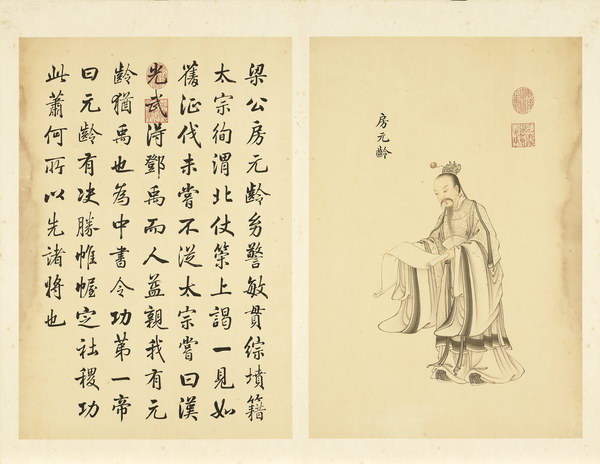 房元齡
梁公房元齡幼警敏貫綜墳籍
太宗徇渭北仗策上謁一見如
舊征伐未嘗不從太宗嘗曰漢
光武得鄧禹而人益親我有元
齡猶禹也為中書令功第一帝
曰元齡有决勝帷幄定社稷功
此蕭何所以先諸將也